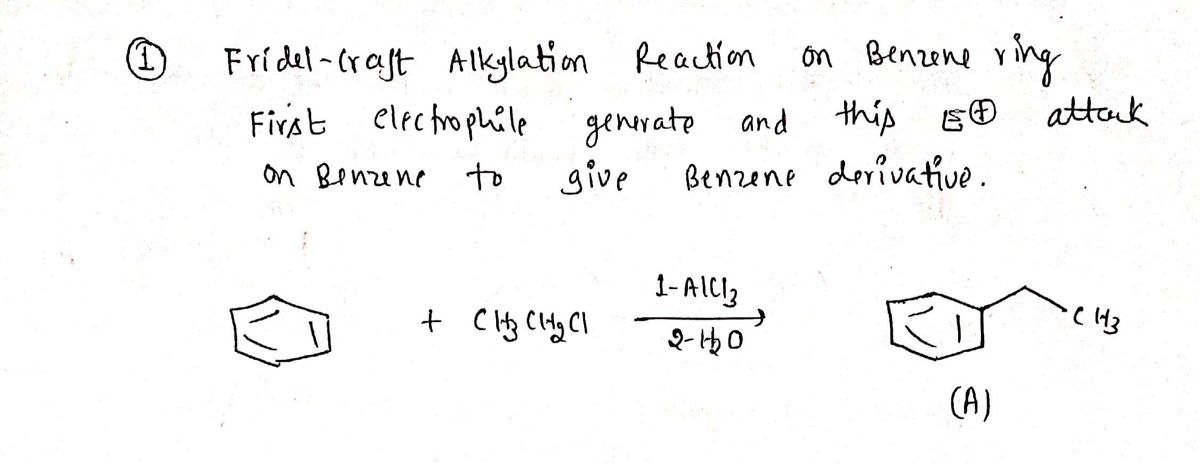 ① Fridel-Craft Alkylation Reaction on Benzene ring
First electrophile generate and this E⊕ attack
on Benzene to give Benzene derivative.
1-AlCl3
+ CH3CH2Cl
2-H2O
CH3
(A)